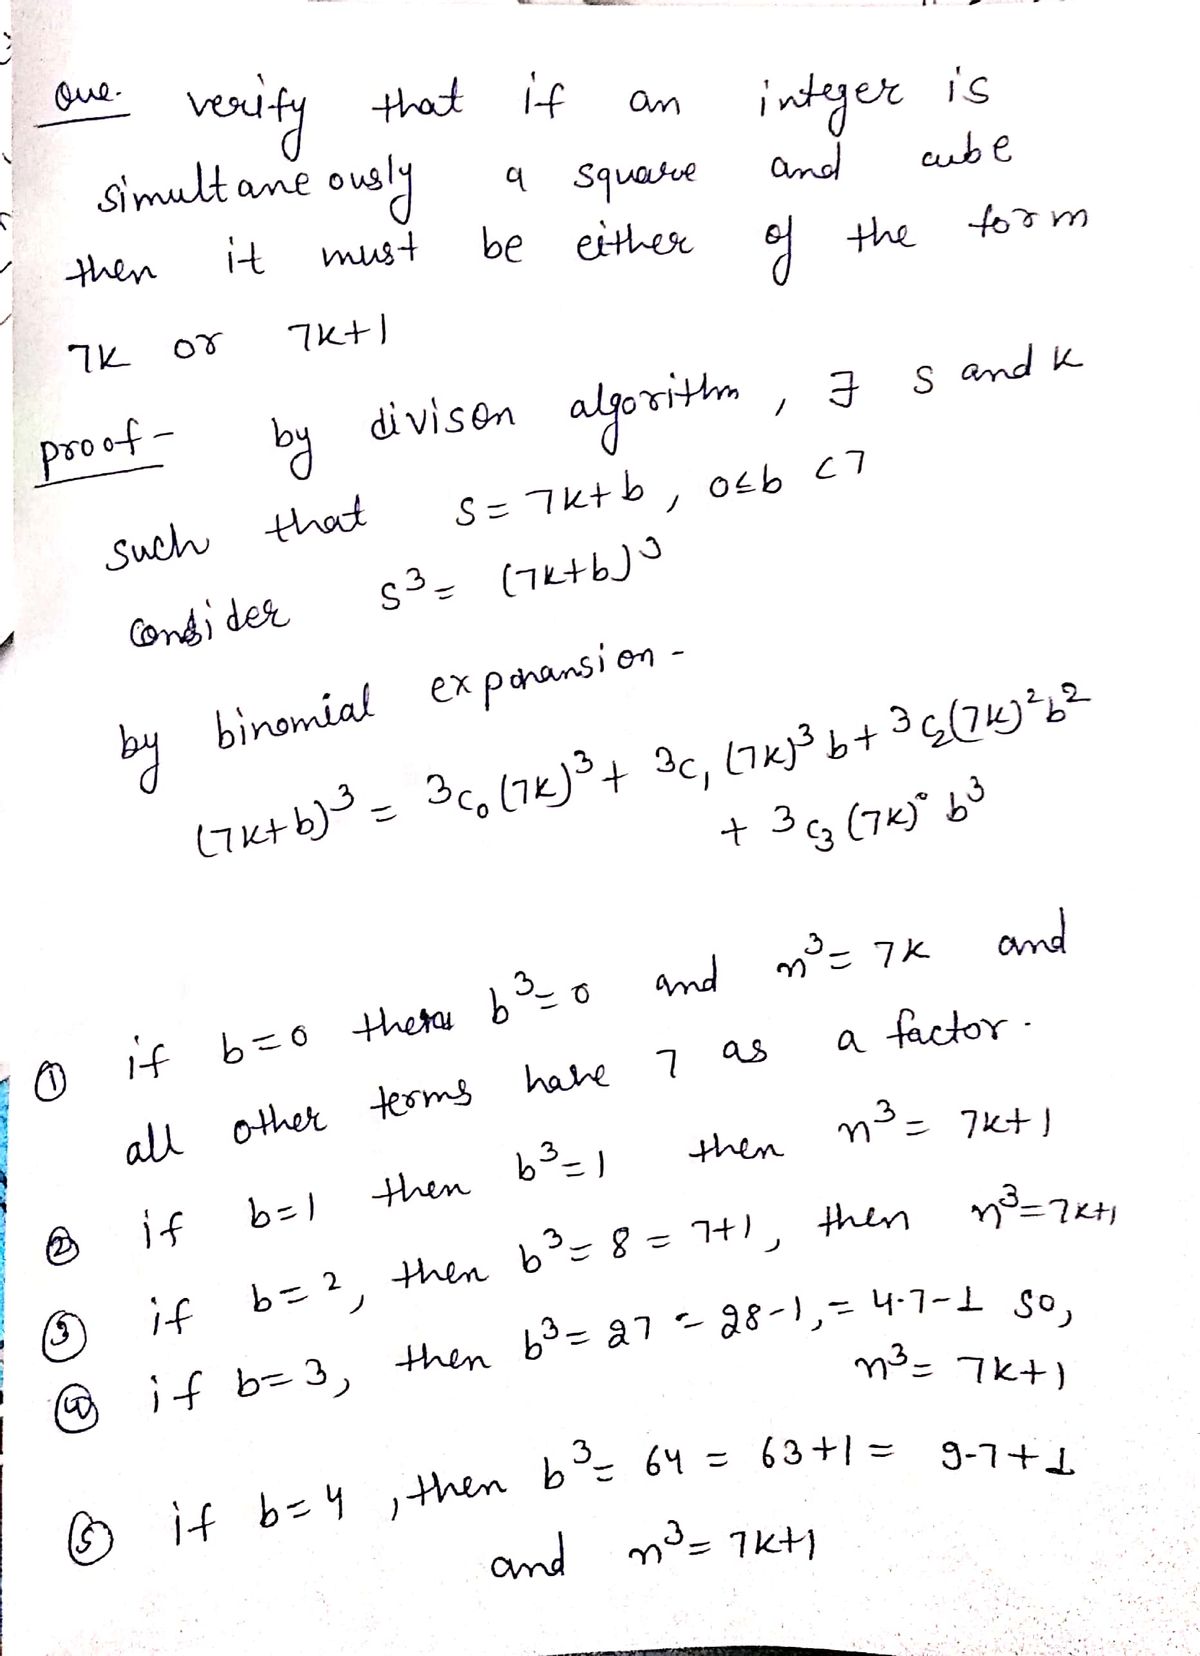 Que. verify that if an integer is
simultaneously a square and cube
then it must be either of the form
7k or 7k+1
proof- by divison algorithm, ∃ s and k
such that s = 7k+b, 0≤b<7
consider s³ = (7k+b)³
by binomial expansion-
(7k+b)³ = 3c₀(7k)³ + 3c₁(7k)³b + 3c₂(7k)²b²
+ 3c₃(7k)⁰b³
① if b=0 then b³=0 and n³=7k and
all other terms have 7 as a factor.
② if b=1 then b³=1 then n³=7k+1
③ if b=2, then b³=8=7+1, then n³=7k+1
④ if b=3, then b³=27=28-1,=4·7-1 so,
n³=7k+1
⑤ if b=4, then b³=64=63+1=9·7+1
and n³=7k+1